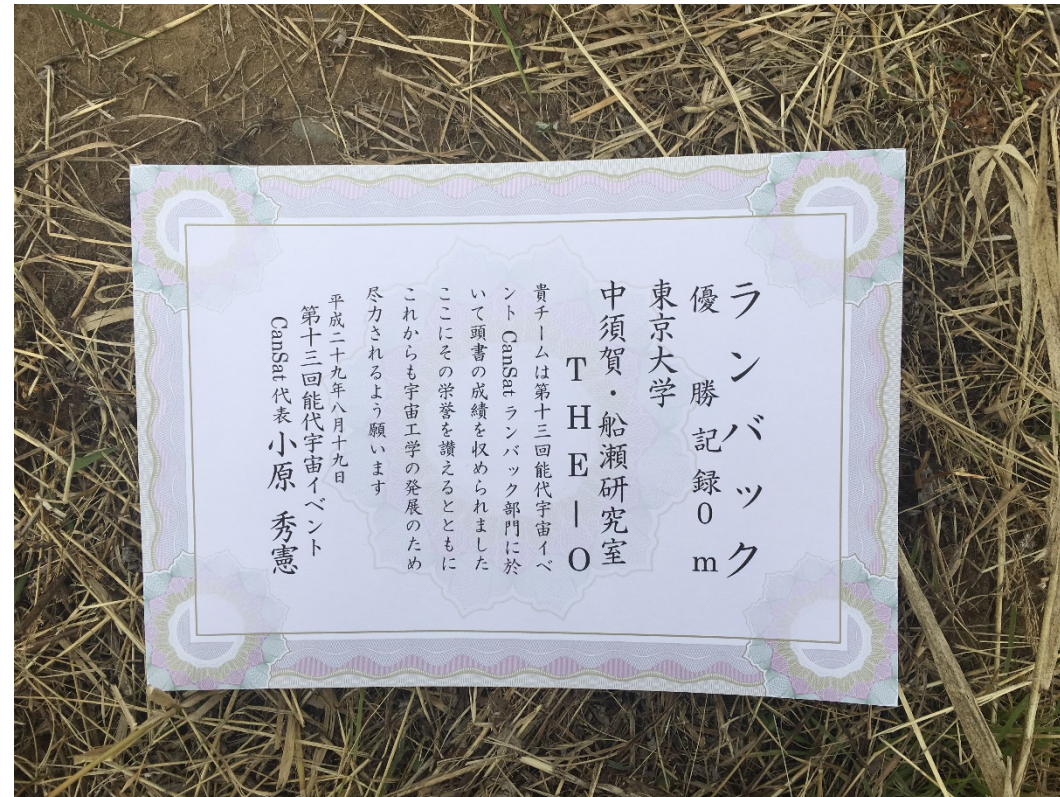 ランバック
優 勝 記 録 0 m
東京大学
中須賀・船瀬研究室
THE－O
貴チームは第十三回能代宇宙イベ
ント CanSat ランバック部門に於
いて頭書の成績を収められました
ここにその栄誉を讃えるとともに
これからも宇宙工学の発展のため
尽力されるよう願います
平成二十九年八月十九日
第十三回能代宇宙イベント
CanSat 代表 小原 秀憲